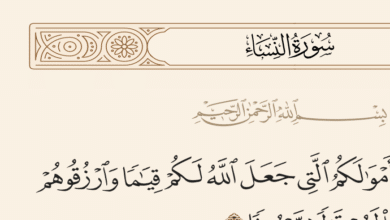 سُورَةُ النِّسَاءِ
بِسْمِ اللَّهِ الرَّحْمَٰنِ الرَّحِيمِ
أَمْوَٰلَكُمُ ٱلَّتِي جَعَلَ ٱللَّهُ لَكُمْ قِيَٰمًا وَٱرْزُقُوهُمْ